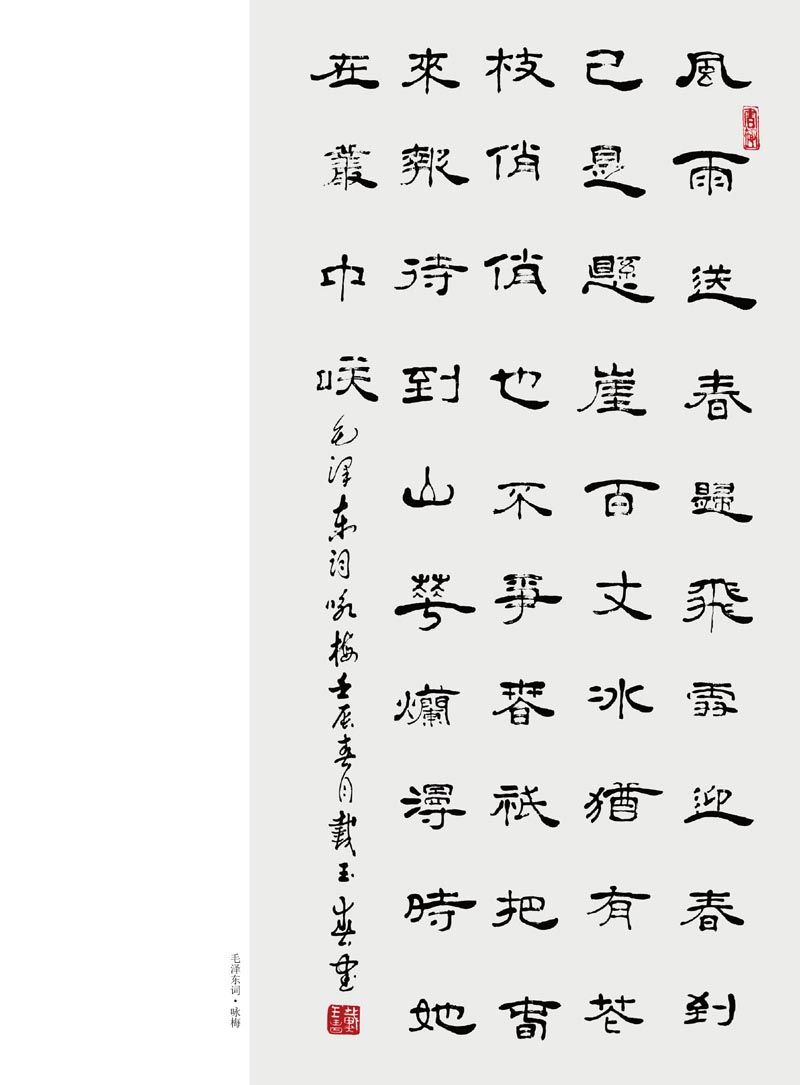 風雨送春歸飛雪迎春到
已是懸崖百丈冰猶有花
枝俏俏也不爭春祇把春
來報待到山華爛漫時她
在叢中咲
毛泽东词咏梅壬辰春月戴玉春书
毛泽东词·咏梅